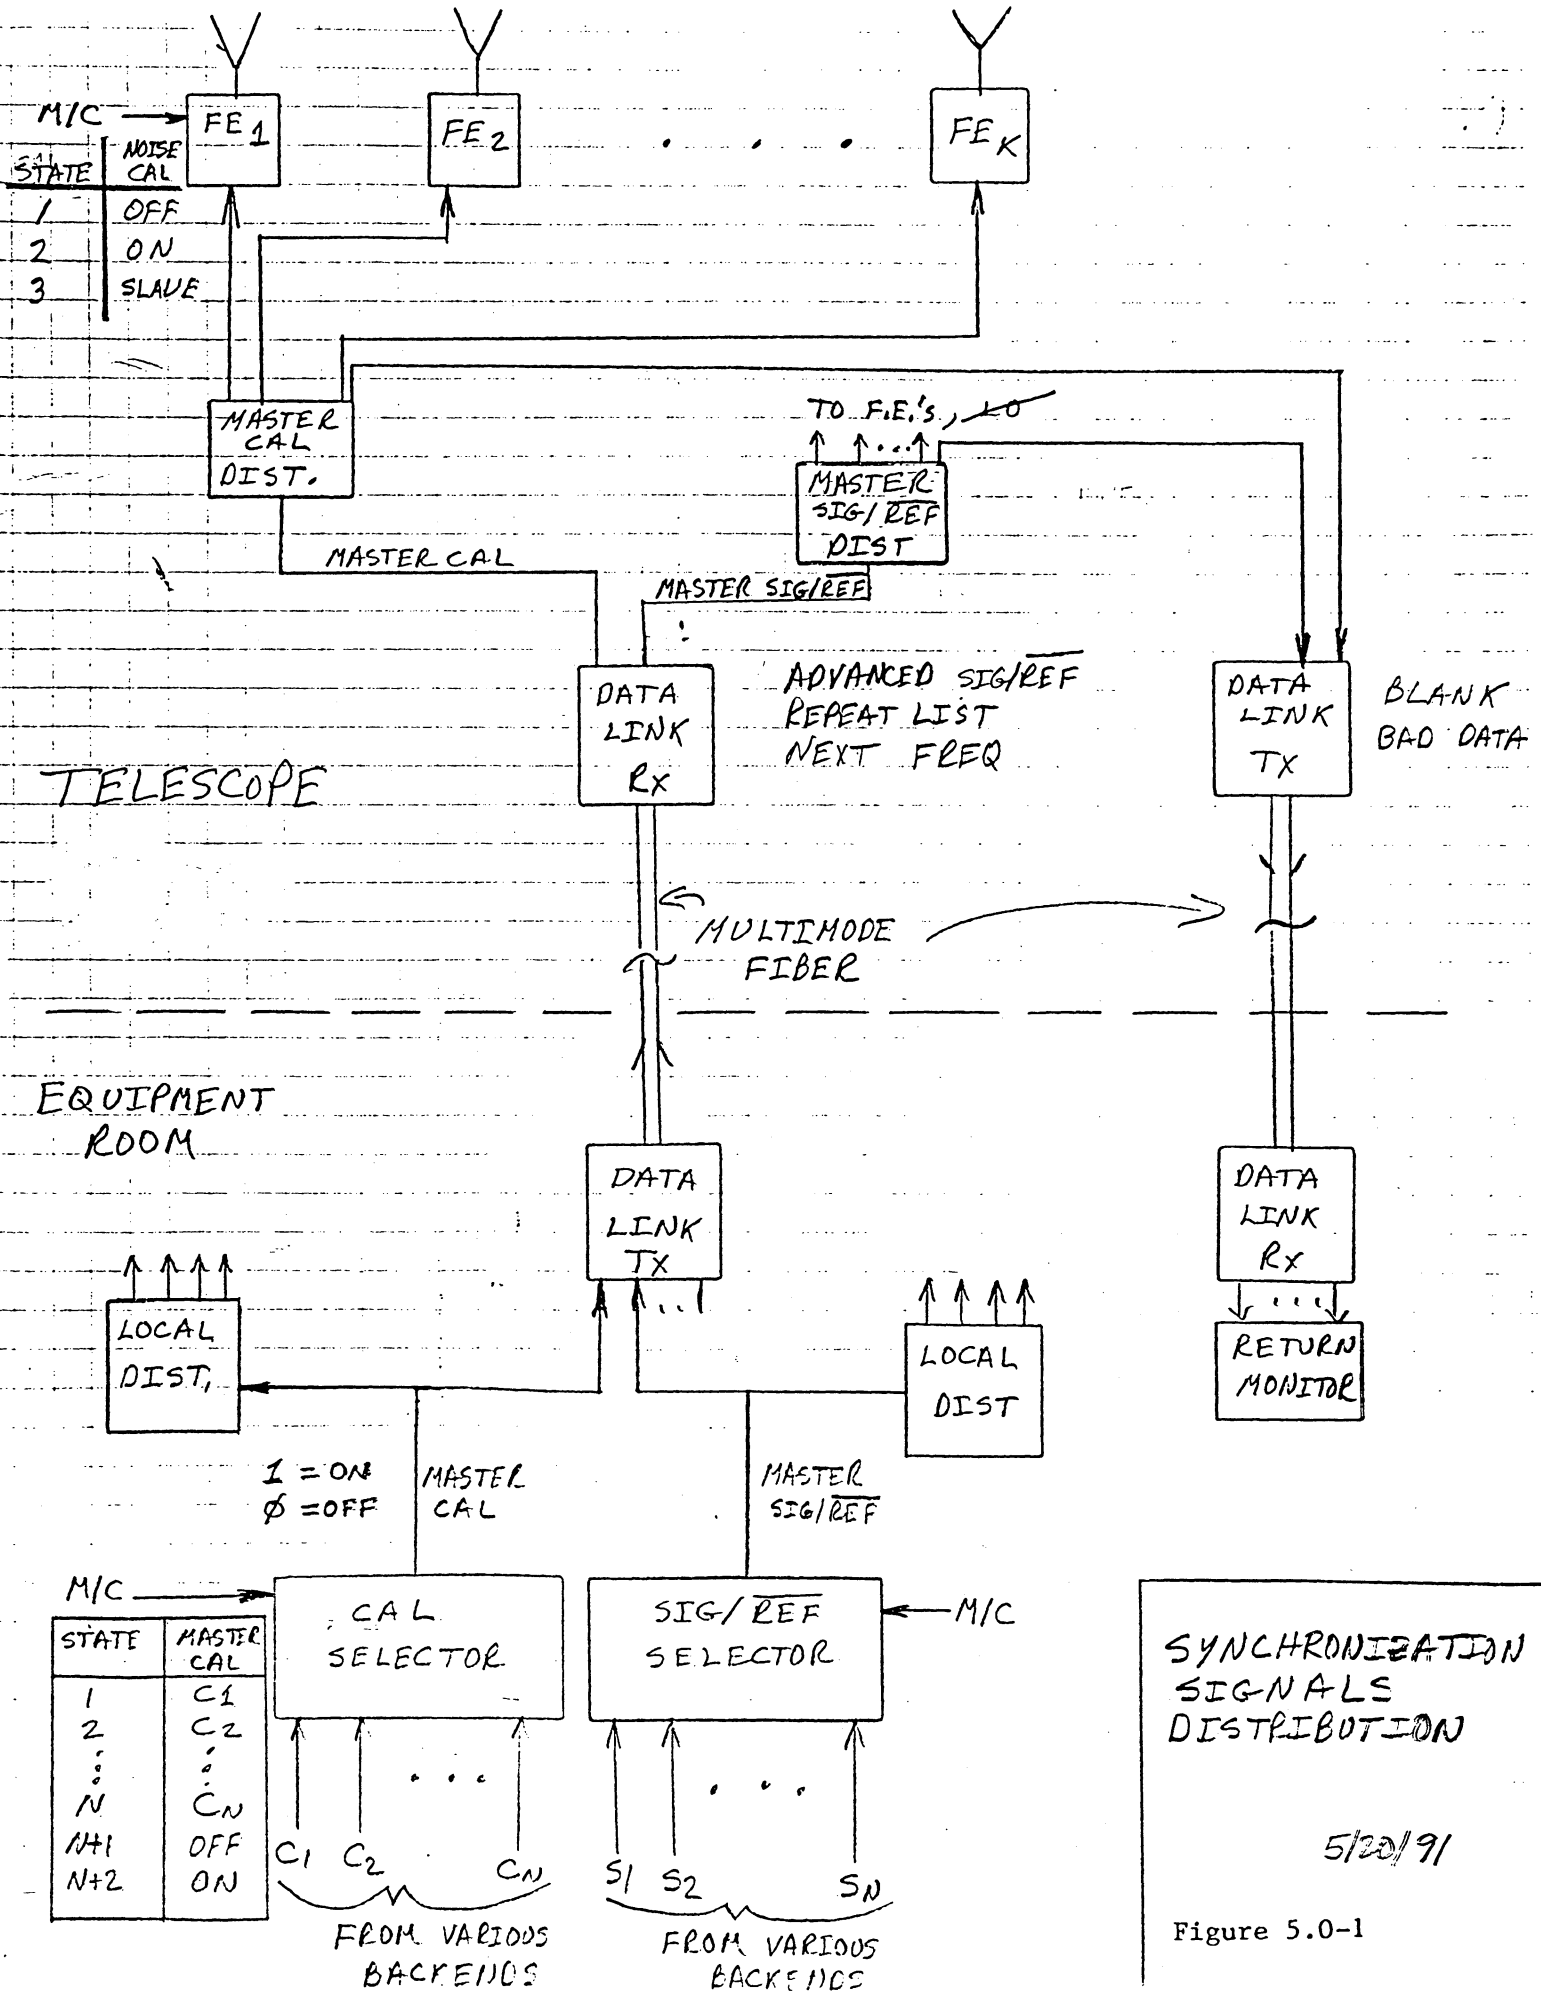 M/C
FE1
FE2
. . .
FEK
STATE NOISE CAL
1 OFF
2 ON
3 SLAVE
MASTER
CAL
DIST.
TO F.E.'s, LO
...
MASTER
SIG/REF
DIST
MASTER CAL
MASTER SIG/REF
DATA
LINK
Rx
ADVANCED SIG/REF
REPEAT LIST
NEXT FREQ
DATA
LINK
TX
BLANK
BAD DATA
TELESCOPE
MULTIMODE
FIBER
EQUIPMENT
ROOM
DATA
LINK
TX
...
DATA
LINK
Rx
...
LOCAL
DIST.
LOCAL
DIST
RETURN
MONITOR
1 = ON
Ø = OFF
MASTER
CAL
MASTER
SIG/REF
M/C
CAL
SELECTOR
SIG/REF
SELECTOR
M/C
STATE MASTER CAL
1 C1
2 C2
⋮ ⋮
N CN
N+1 OFF
N+2 ON
. . .
. . .
C1 C2 CN
S1 S2 SN
FROM VARIOUS
BACKENDS
FROM VARIOUS
BACKENDS
SYNCHRONIZATION
SIGNALS
DISTRIBUTION
5/20/91
Figure 5.0-1